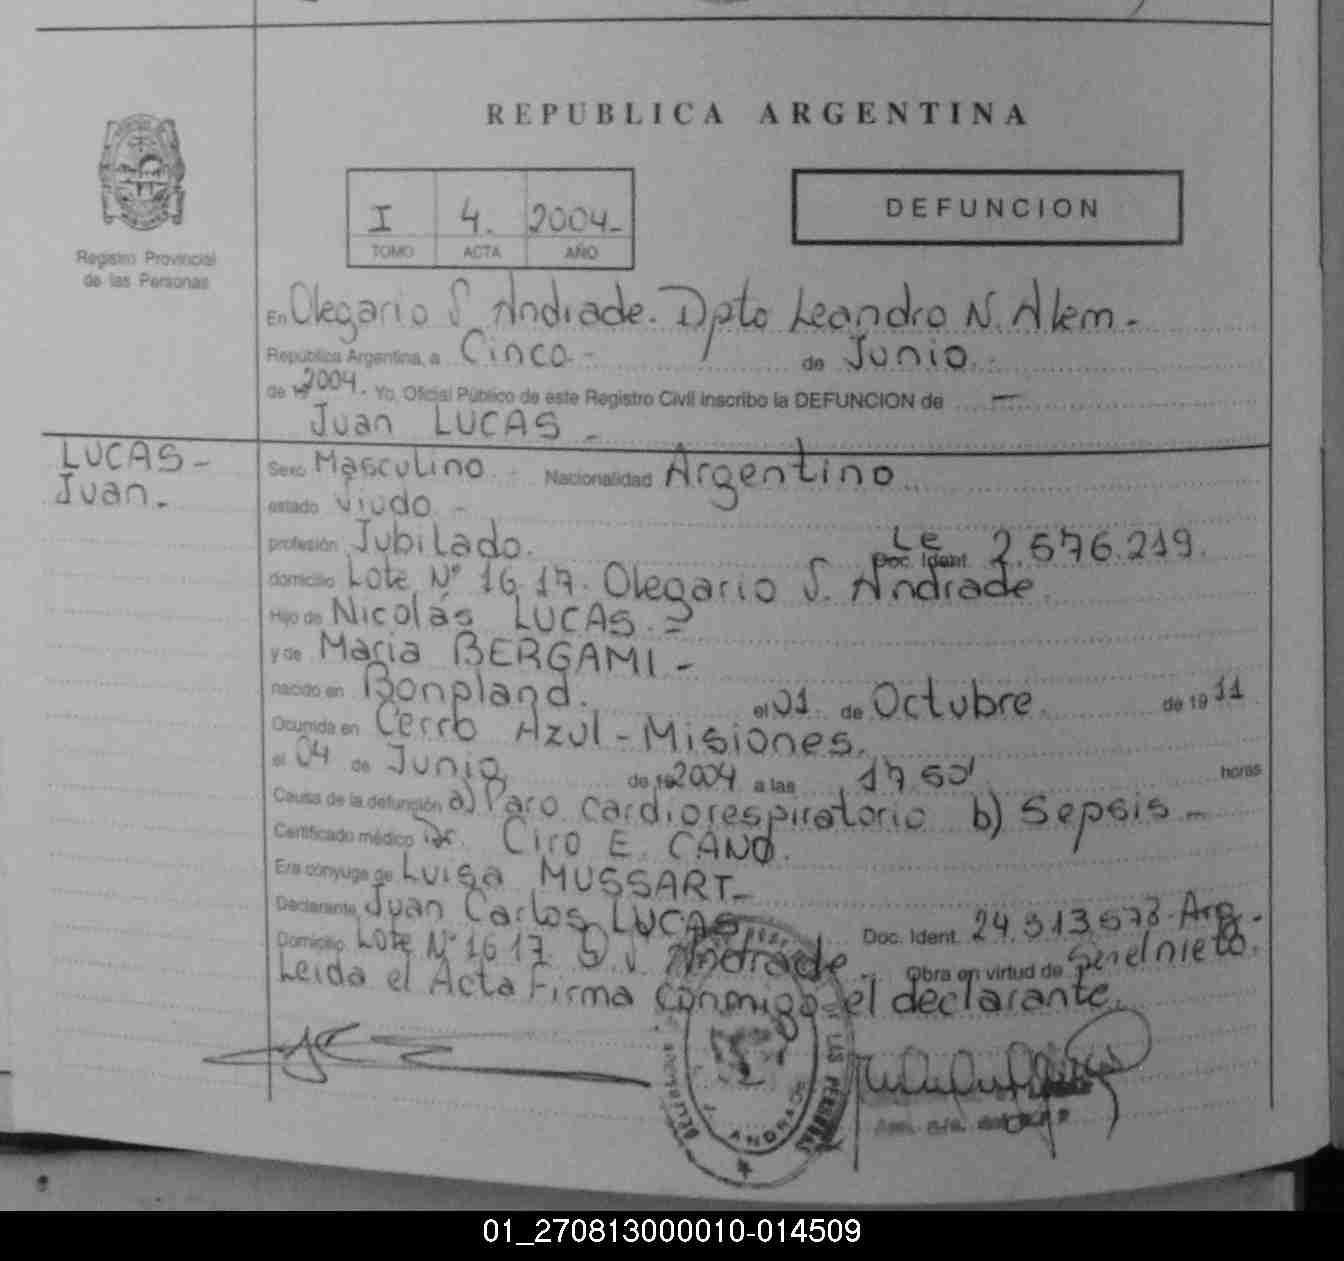 REPUBLICA ARGENTINA
Registro Provincial
de las Personas
I 4. 2004-
TOMO ACTA AÑO
DEFUNCION
En Olegario S Andrade. Dpto Leandro N. Alem-
República Argentina, a Cinco- de Junio.-
de 2004. Yo, Oficial Público de este Registro Civil inscribo la DEFUNCION de -
Juan LUCAS -
LUCAS-
Juan-
Sexo Masculino - Nacionalidad Argentino
estado Viudo -
profesión Jubilado. Le Doc. Ident. 2.576.219.
domicilio Lote Nº 16 17. Olegario S. Andrade
Hijo de Nicolás LUCAS =
y de Maria BERGAMI-
nacido en Bonpland. el 01 de Octubre de 1911
Ocurrida en Cerro Azul-Misiones.
el 04 de Junio de 2004 a las 17 50' horas
Causa de la defunción a) Paro cardiorespiratorio b) Sepsis-
Certificado médico Dr. Ciro E. CANO.
Era cónyuge de Luisa MUSSART-
Declarante Juan Carlos LUCAS Doc. Ident. 24.313.573-Arg.-
Domicilio Lote Nº 16 17. O S Andrade- Obra en virtud de Ser el nieto.
Leida el Acta Firma conmigo el declarante.
LAS PERSONAS
ANDRADE
01_270813000010-014509